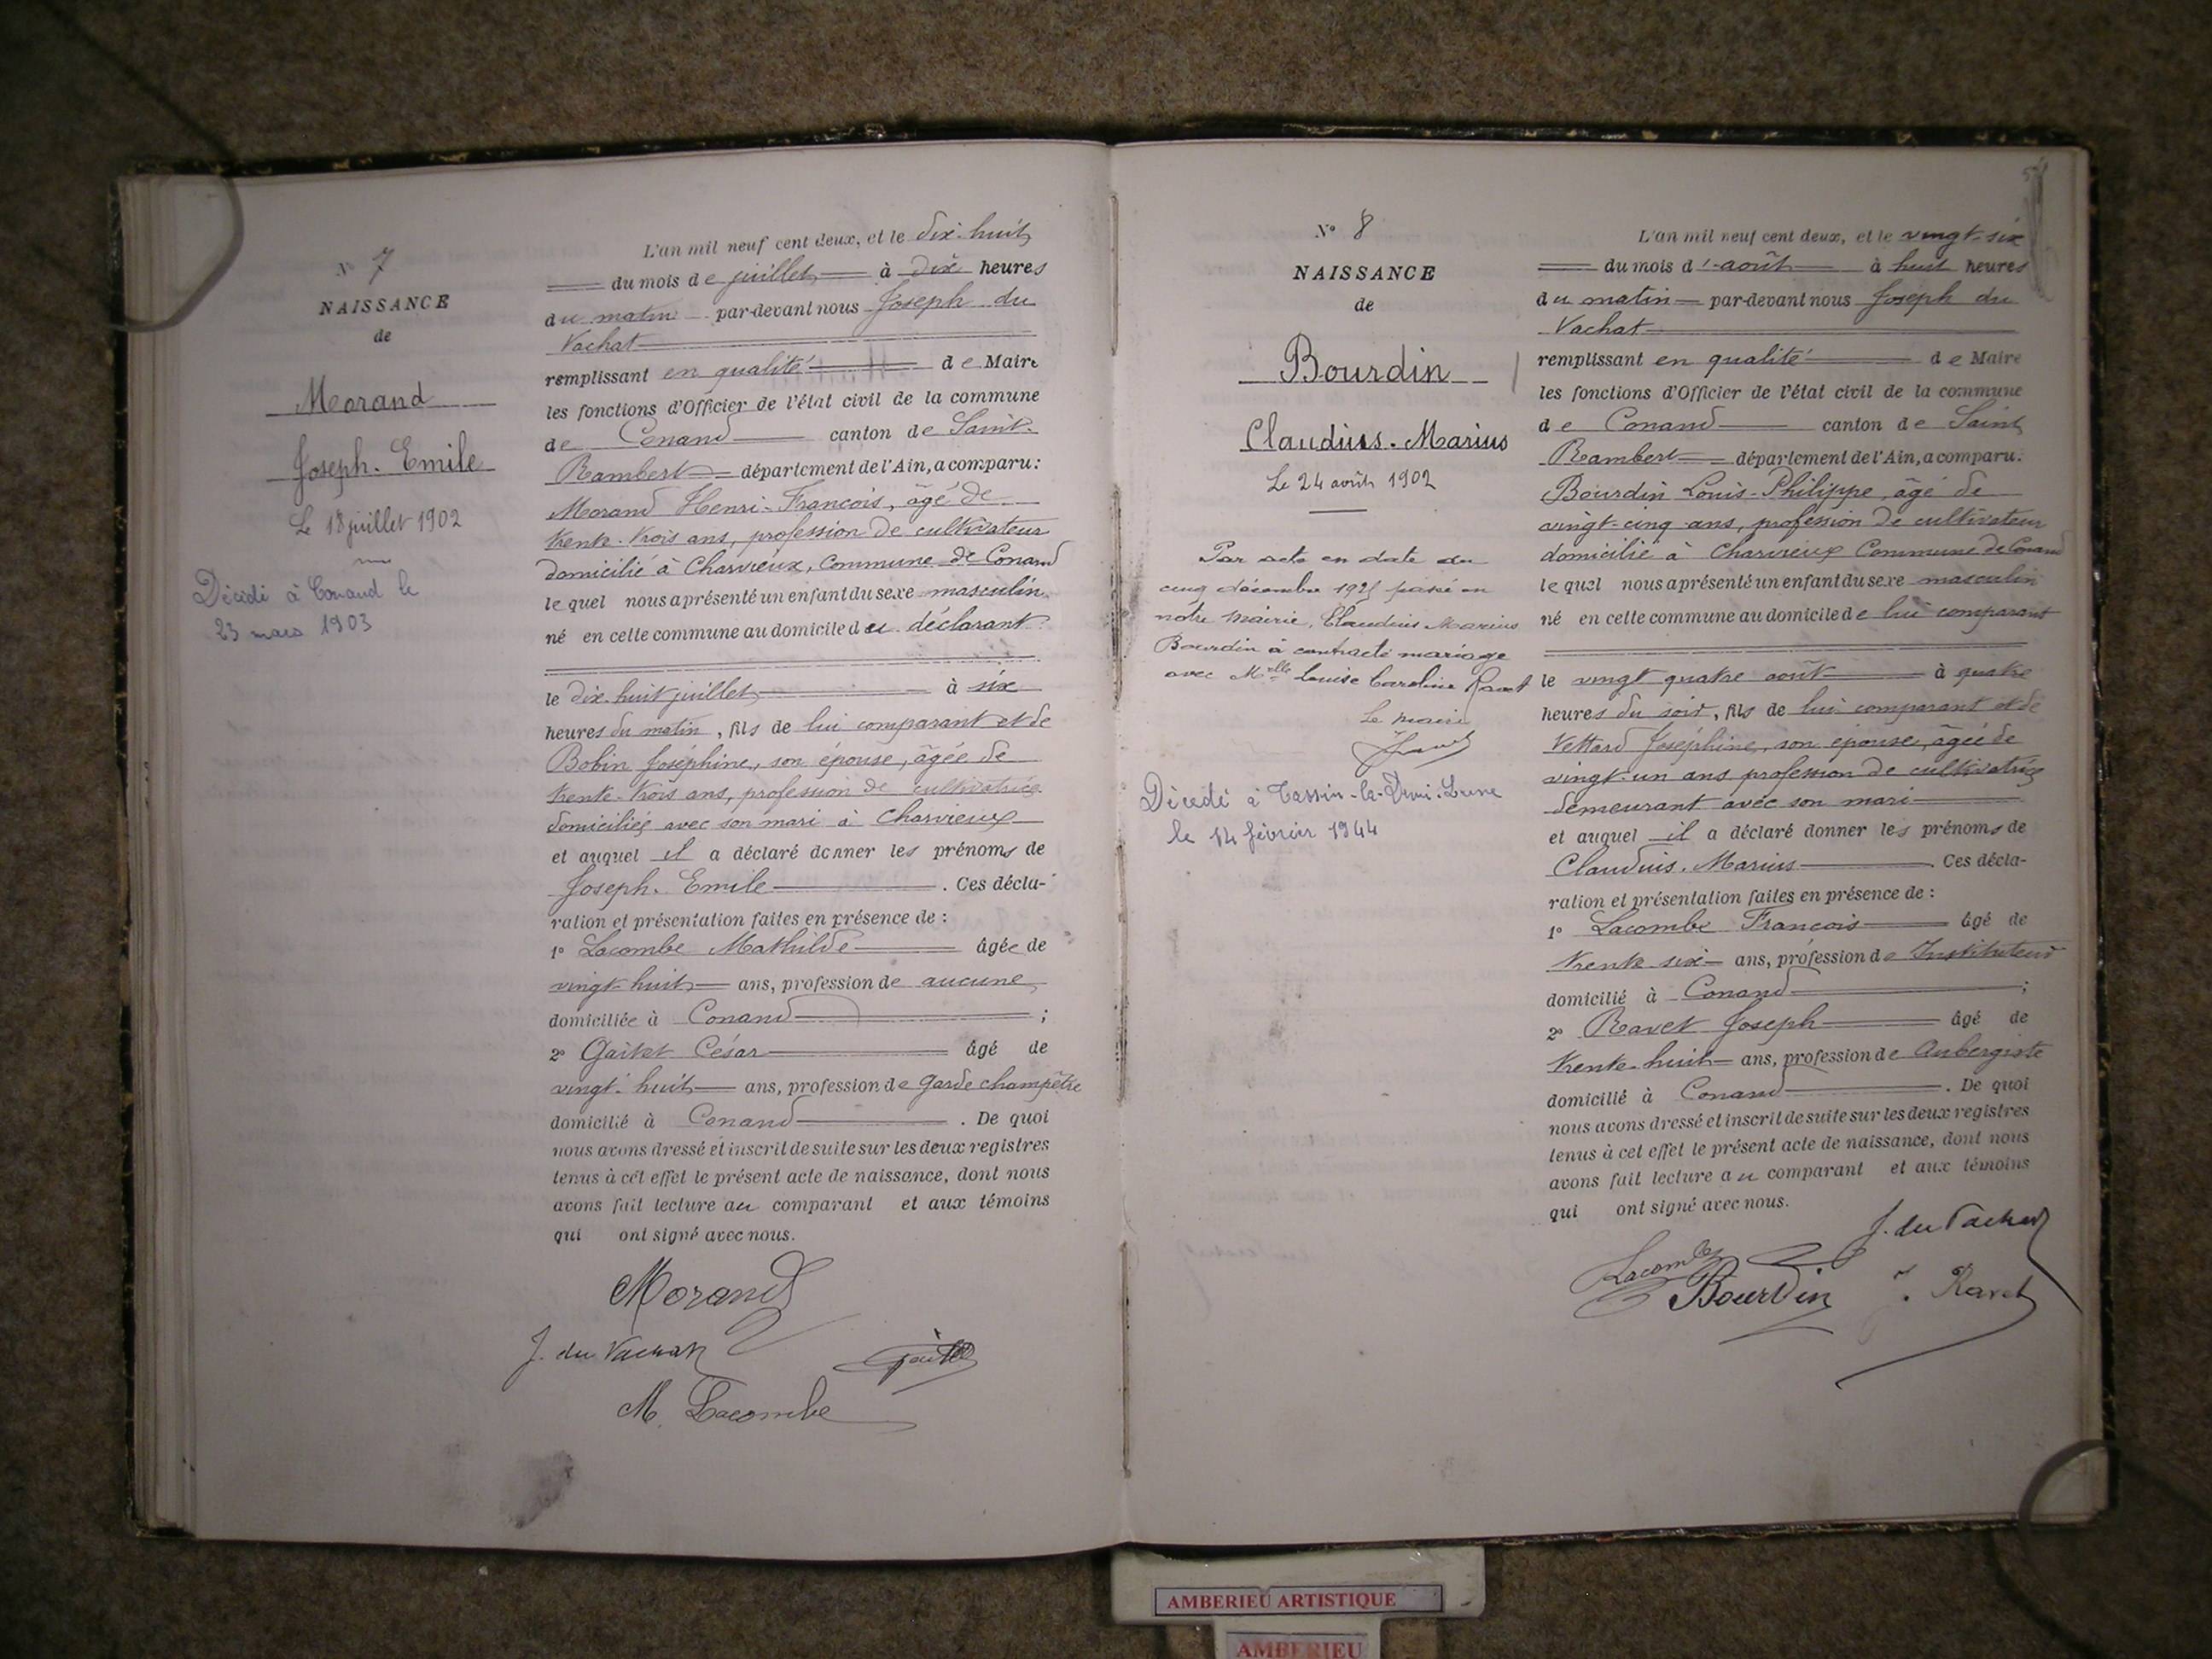 N° 7
NAISSANCE
de
Morand
Joseph. Emile
Le 18 juillet 1902
Décédé à Conand le
23 mars 1903
L'an mil neuf cent deux, et le dix-huit
du mois de juillet à dix heures
du matin par-devant nous Joseph du
Vachat
remplissant en qualité de Maire
les fonctions d'Officier de l'état civil de la commune
de Conand canton de Saint-
Rambert département de l'Ain, a comparu:
Morand Henri-François, âgé de
trente-trois ans, profession de cultivateur
domicilié à Charvieux, Commune de Conand
le quel nous a présenté un enfant du sexe masculin
né en cette commune au domicile du déclarant
le dix-huit juillet à six
heures du matin, fils de lui comparant et de
Bobin Joséphine, son épouse, âgée de
trente-trois ans, profession de cultivatrice
domiciliée avec son mari à Charvieux
et auquel il a déclaré donner les prénoms de
Joseph. Emile. Ces décla-
ration et présentation faites en présence de :
1° Lacombe Mathilde âgée de
vingt-huit ans, profession de aucune
domiciliée à Conand ;
2° Gaitet César âgé de
vingt-huit ans, profession de Garde champêtre
domicilié à Conand. De quoi
nous avons dressé et inscrit de suite sur les deux registres
tenus à cet effet le présent acte de naissance, dont nous
avons fait lecture au comparant et aux témoins
qui ont signé avec nous.
Morand
J. du Vachat
Gaitet
M. Lacombe
N° 8
NAISSANCE
de
Bourdin
Claudius-Marius
Le 24 août 1902
Par acte en date du
cinq décembre 1925 passé en
notre mairie, Claudius Marius
Bourdin a contracté mariage
avec Melle Louise Caroline Ravet
Le maire
Décédé à Tassin-la-Demi-Lune
le 14 février 1944
L'an mil neuf cent deux, et le vingt-six
du mois d'août à huit heures
du matin par-devant nous Joseph du
Vachat
remplissant en qualité de Maire
les fonctions d'Officier de l'état civil de la commune
de Conand canton de Saint
Rambert département de l'Ain, a comparu.
Bourdin Louis-Philippe, âgé de
vingt-cinq ans, profession de cultivateur
domicilié à Charvieux Commune de Conand
le quel nous a présenté un enfant du sexe masculin
né en cette commune au domicile de lui comparant
le vingt quatre août à quatre
heures du soir, fils de lui comparant et de
Vettard Joséphine, son épouse, âgée de
vingt-un ans profession de cultivatrice
demeurant avec son mari
et auquel il a déclaré donner les prénoms de
Claudius. Marius. Ces décla-
ration et présentation faites en présence de :
1° Lacombe François âgé de
trente-six ans, profession de Instituteur
domicilié à Conand ;
2° Ravet Joseph âgé de
trente-huit ans, profession de Aubergiste
domicilié à Conand. De quoi
nous avons dressé et inscrit de suite sur les deux registres
tenus à cet effet le présent acte de naissance, dont nous
avons fait lecture au comparant et aux témoins
qui ont signé avec nous.
J. du Vachat
Lacombe
Bourdin J. Ravet
AMBERIEU ARTISTIQUE
AMBERIEU